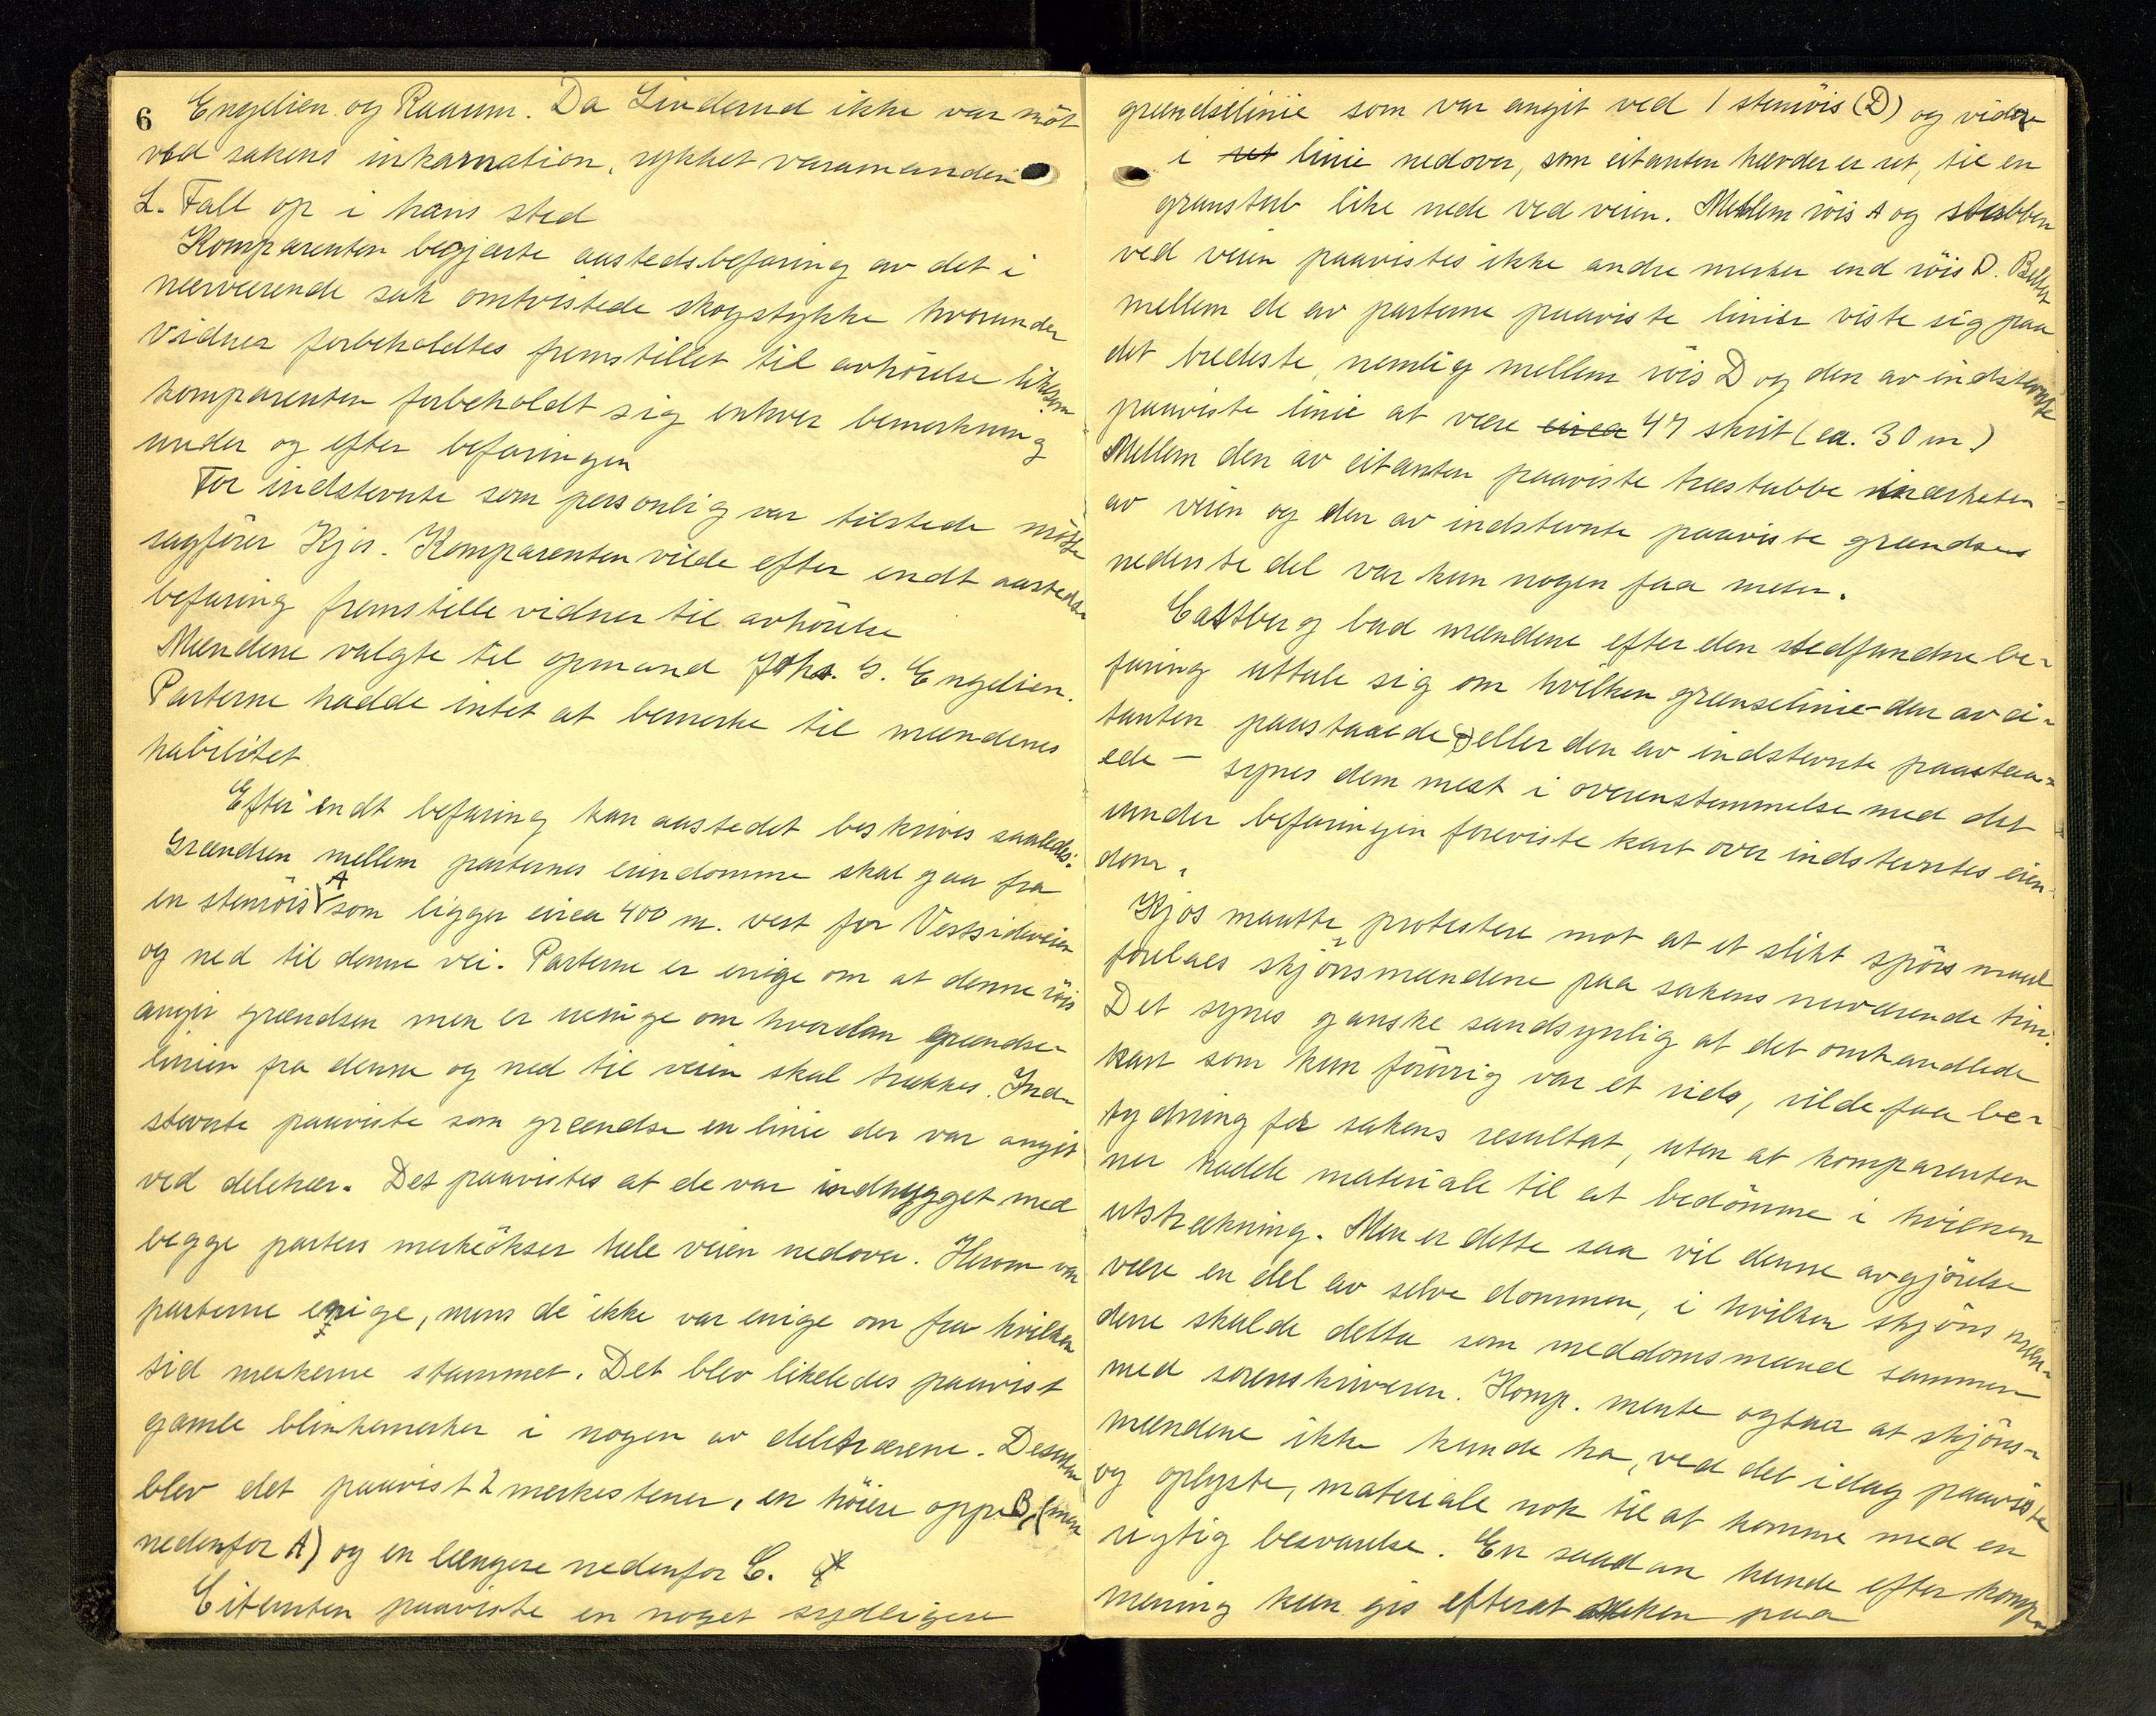 6 Engelien og Raaum. Da Linderud ikke var møt
ved sakens inkamination, rykket varamanden
L. Fall op i hans sted
Komparenten begjærte aastedsbefaring av det i
nærværende sak omtvistede skogstykke hvorunder
vidner forbeholdtes fremstillet til avhörelse likesom
komparenten forbeholdt sig enhver bemerkning
under og efter befaringen
For indstevnte som personlig var tilstede mötte
sagförer Kjos. Komparenten vilde efter endt aasteds-
befaring fremstille vidner til avhörelse
Mændene valgte til opmand Johs. G. Engelien.
Parterne hadde intet at bemerke til mændenes
habilitet.
Efter endt befaring kan aastedet beskrives saaledes:
Grændsen mellem parternes eiendomme skal gaa fra
en stenröis A som ligger circa 400 m. vest for Vestsideveien
og ned til denne vei. Parterne er enige om at denne röis
angir grændsen men er uenige om hvordan grændse-
linien fra denne og ned til veien skal trækkes. Ind-
stevnte paaviste som grændse en linie der var angit
ved deletrær. Det paavistes at de var indhygget med
begge parters merkeökser hele veien nedover. Herom var
parterne enige, mens de ikke var enige om fra hvilken
tid merkerne stammet. Det blev likeledes paavist
gamle blinkemerker i nogen av deletrærene. Desuten
blev det paavist 2 merkestener, en höiere oppe B, (men
nedenfor A) og en længere nedenfor C.
Citanten paaviste en noget sydligere
grændselinie som var angit ved 1 stenröis (D) og videre
i ret linie nedover, som citanten hævder er ret, til en
granstub like nede ved veien. Mellem röis A og stubben
ved veien paavistes ikke andre merker end röis D. Beltet
mellem de av parterne paaviste linier viste sig paa
det bredeste, nemlig mellem röis D og den av indstevnte
paaviste linie at være circa 47 skrit (ca. 30 m.)
Mellem den av citanten paaviste træstubbe i nærheten
av veien og den av indstevnte paaviste grændses
nederste del var kun nogen faa meter.
Castberg bad mændene efter den stedfundne be-
faring uttale sig om hvilken grænselinie - den av ci-
tanten paastaaede eller den av indstevnte paastaa-
ede - synes dem mest i overenstemmelse med det
under befaringen foreviste kart over indstevntes eien-
dom.
Kjos maatte protestere mot at et slikt spörsmaal
forelaes skjönsmændene paa sakens nuværende trin.
Det synes ganske sandsynlig at det omhandlede
kart som kun forövrig var et rids, vilde faa be-
tydning for sakens resultat, uten at komparenten
nu hadde materiale til at bedömme i hvilken
utstrækning. Men er dette saa vil denne avgjörelse
være en del av selve dommen, i hvilken skjönsmæn-
dene skulde delta som meddomsmænd sammen
med sorenskriveren. Komp. mente ogsaa at skjöns-
mændene ikke kunde ha, ved det idag paaviste
og oplyste, materiale nok til at komme med en
rigtig besvarelse. En saadan kunde efter komp.
mening kun gis efterat saken paa